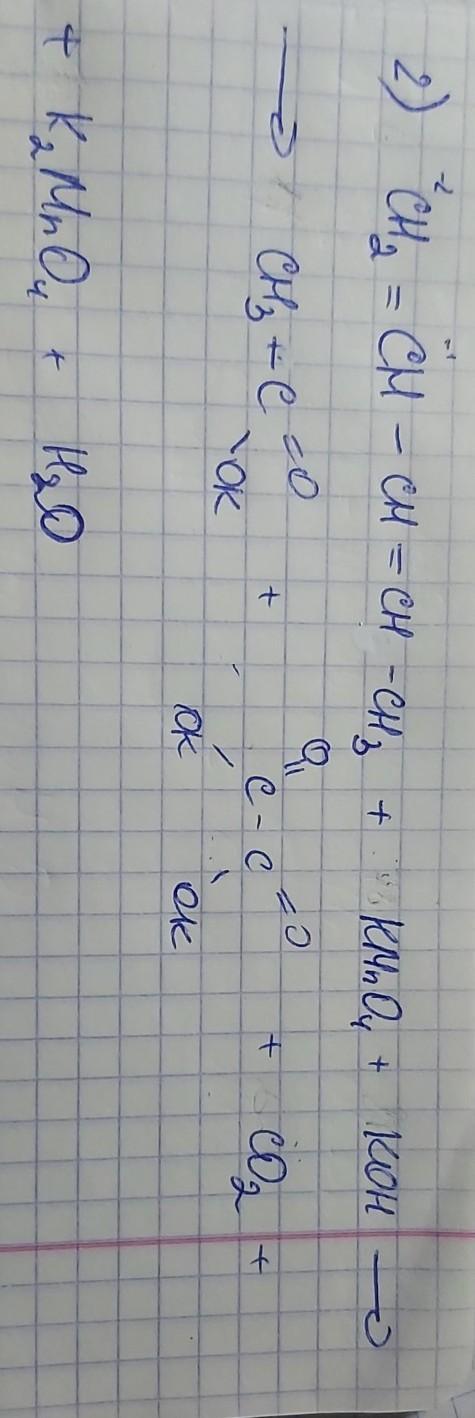 2) CH₂⁻² = CH⁻¹ - CH = CH - CH₃ + KMnO₄ + KOH →
→ CH₃ - C =O \ OK + O= C - C =O / OK \ OK + CO₂ +
+ K₂MnO₄ + H₂O